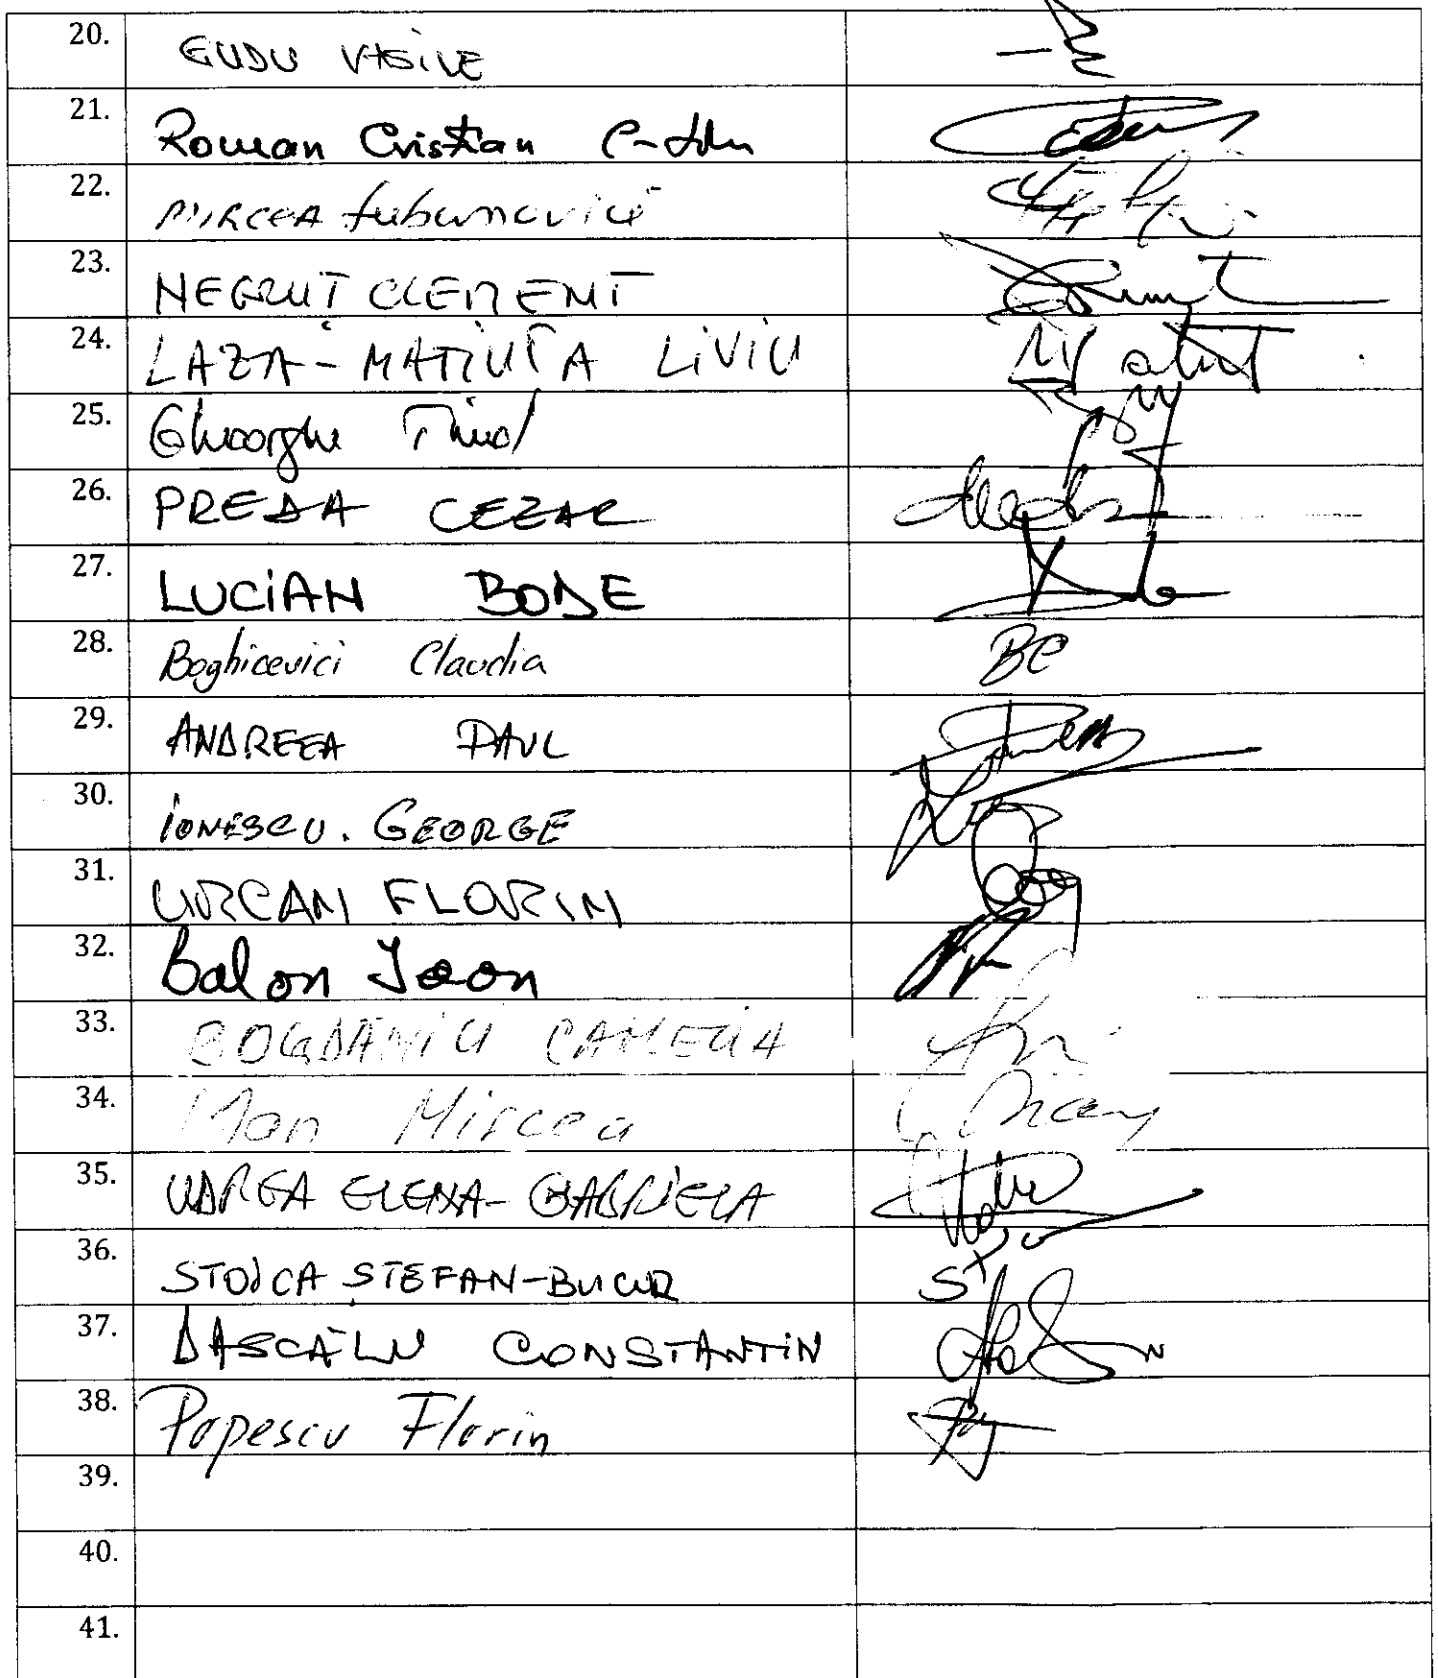 20. GUDU VASILE
21. Roman Cristian C-tin
22. MIRCEA Lubanovici
23. NEGRUȚ CLEMENT
24. LAZA-MATIUȚA LIVIU
25. Gheorghe Tinel
26. PREDA CEZAR
27. LUCIAN BODE
28. Boghicevici Claudia BC
29. ANDREEA PAUL
30. IONESCU. GEORGE
31. URCAN FLORIN
32. Balan Ioan
33. BOGDANICI CAMELIA
34. Man Mircea
35. UDREA ELENA-GABRIELA
36. STOICA ȘTEFAN-BUCUR
37. DASCĂLU CONSTANTIN
38. Popescu Florin
39.
40.
41.